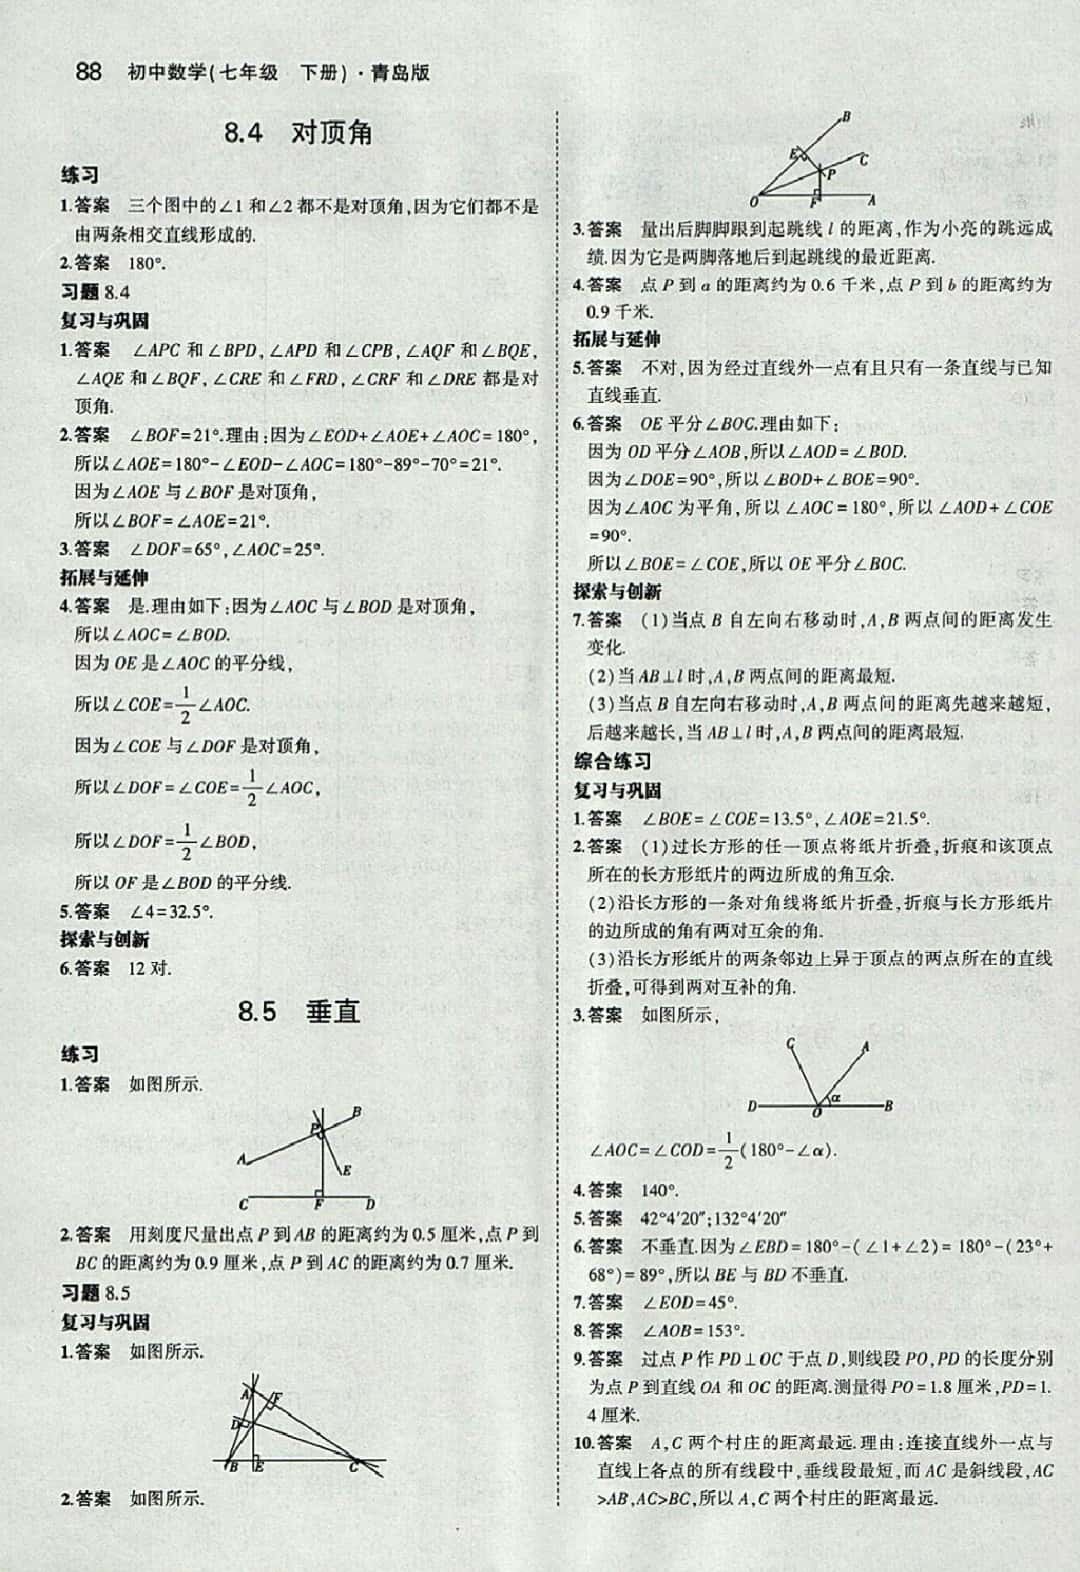 88 初中数学(七年级 下册)·青岛版
8.4 对顶角
练习
1.答案 三个图中的∠1和∠2都不是对顶角,因为它们都不是
由两条相交直线形成的.
2.答案 180°.
习题8.4
复习与巩固
1.答案 ∠APC 和∠BPD,∠APD 和∠CPB,∠AQF 和∠BQE,
∠AQE 和∠BQF,∠CRE 和∠FRD,∠CRF 和∠DRE 都是对
顶角.
2.答案 ∠BOF=21°.理由:因为∠EOD+∠AOE+∠AOC=180°,
所以∠AOE=180°-∠EOD-∠AOC=180°-89°-70°=21°.
因为∠AOE 与∠BOF 是对顶角,
所以∠BOF=∠AOE=21°.
3.答案 ∠DOF=65°,∠AOC=25°.
拓展与延伸
4.答案 是.理由如下:因为∠AOC 与∠BOD 是对顶角,
所以∠AOC=∠BOD.
因为 OE 是∠AOC 的平分线,
所以∠COE=1/2∠AOC.
因为∠COE 与∠DOF 是对顶角,
所以∠DOF=∠COE=1/2∠AOC,
所以∠DOF=1/2∠BOD,
所以 OF 是∠BOD 的平分线.
5.答案 ∠4=32.5°.
探索与创新
6.答案 12对.
8.5 垂直
练习
1.答案 如图所示.
B
P
A
E
C F D
2.答案 用刻度尺量出点 P 到AB 的距离约为0.5厘米,点 P 到
BC 的距离约为0.9厘米,点 P 到 AC 的距离约为0.7厘米.
习题8.5
复习与巩固
1.答案 如图所示.
A F
D
B E C
2.答案 如图所示.
B
E C
P
O F A
3.答案 量出后脚脚跟到起跳线 l 的距离,作为小亮的跳远成
绩.因为它是两脚落地后到起跳线的最近距离.
4.答案 点 P 到 a 的距离约为0.6千米,点 P 到 b 的距离约为
0.9千米.
拓展与延伸
5.答案 不对,因为经过直线外一点有且只有一条直线与已知
直线垂直.
6.答案 OE 平分∠BOC.理由如下:
因为 OD 平分∠AOB,所以∠AOD=∠BOD.
因为∠DOE=90°,所以∠BOD+∠BOE=90°.
因为∠AOC 为平角,所以∠AOC=180°,所以∠AOD+∠COE
=90°.
所以∠BOE=∠COE,所以 OE 平分∠BOC.
探索与创新
7.答案 (1)当点 B 自左向右移动时,A,B 两点间的距离发生
变化.
(2)当 AB⊥l 时,A,B 两点间的距离最短.
(3)当点 B 自左向右移动时,A,B 两点间的距离先越来越短,
后越来越长,当 AB⊥l 时,A,B 两点间的距离最短.
综合练习
复习与巩固
1.答案 ∠BOE=∠COE=13.5°,∠AOE=21.5°.
2.答案 (1)过长方形的任一顶点将纸片折叠,折痕和该顶点
所在的长方形纸片的两边所成的角互余.
(2)沿长方形的一条对角线将纸片折叠,折痕与长方形纸片
的边所成的角有两对互余的角.
(3)沿长方形纸片的两条邻边上异于顶点的两点所在的直线
折叠,可得到两对互补的角.
3.答案 如图所示,
C A
D O α B
∠AOC=∠COD=1/2(180°-∠α).
4.答案 140°.
5.答案 42°4′20″;132°4′20″
6.答案 不垂直.因为∠EBD=180°-(∠1+∠2)=180°-(23°+
68°)=89°,所以 BE 与 BD 不垂直.
7.答案 ∠EOD=45°.
8.答案 ∠AOB=153°.
9.答案 过点 P 作 PD⊥OC 于点 D,则线段 PO,PD 的长度分别
为点 P 到直线 OA 和 OC 的距离.测量得 PO=1.8厘米,PD=1.
4厘米.
10.答案 A,C 两个村庄的距离最远.理由:连接直线外一点与
直线上各点的所有线段中,垂线段最短,而 AC 是斜线段,AC
>AB,AC>BC,所以 A,C 两个村庄的距离最远.